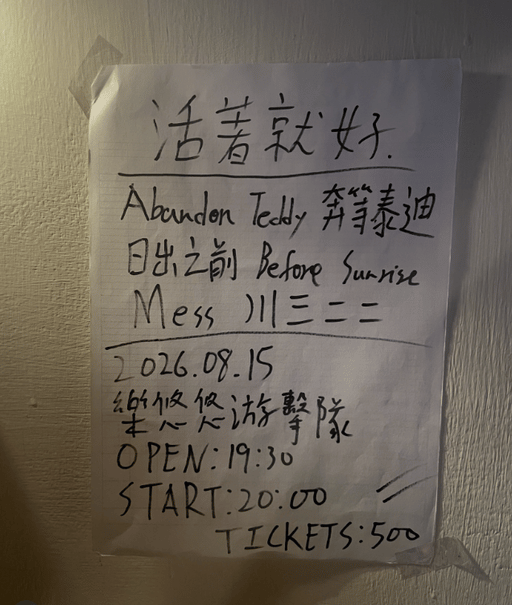 活著就好.
Abandon Teddy 奔等泰迪
日出之前 Before Sunrise
Mess 川三二二
2026.08.15
樂悠悠游擊隊
OPEN:19:30
START:20:00
TICKETS:500